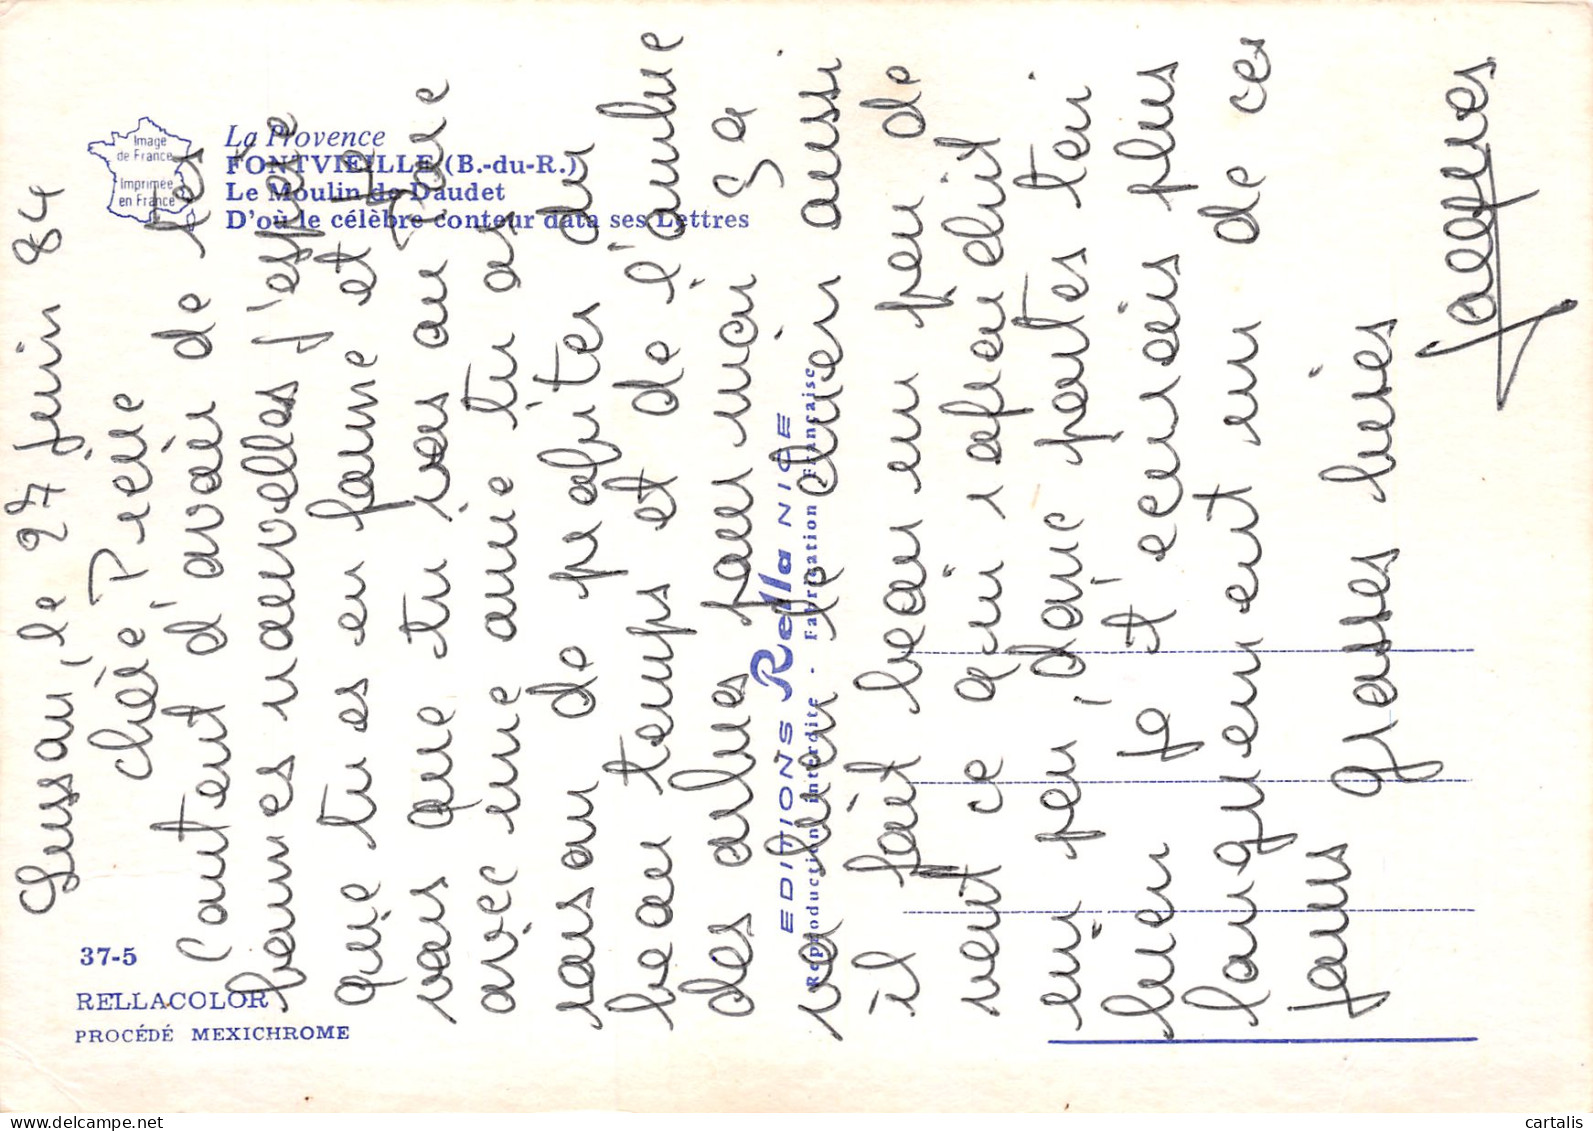 Image
de France
Imprimée
en France
La Provence
FONTVIEILLE (B.-du-R.)
Le Moulin de Daudet
D'où le célèbre conteur data ses Lettres
37-5
RELLACOLOR
PROCÉDÉ MEXICHROME
EDITIONS Rella NICE
Reproduction interdite - Fabrication Française
Lussan, le 27 juin 84
chère Pierre
Content d'avoir de tes
bonnes nouvelles j'espère
que tu es en forme et je
vois que tu vas au Tore
avec une amie tu as
raison de profiter du
beau temps et de l'ambre
des arbres pour moi sa
va bien le chien aussi
il fait beau un peu de
vent ce qui rafraichit
un peu, donc portes toi
bien je t'ecrirais plus
longuement un de ces
jours grosses bises
Jacques
cartalis.com